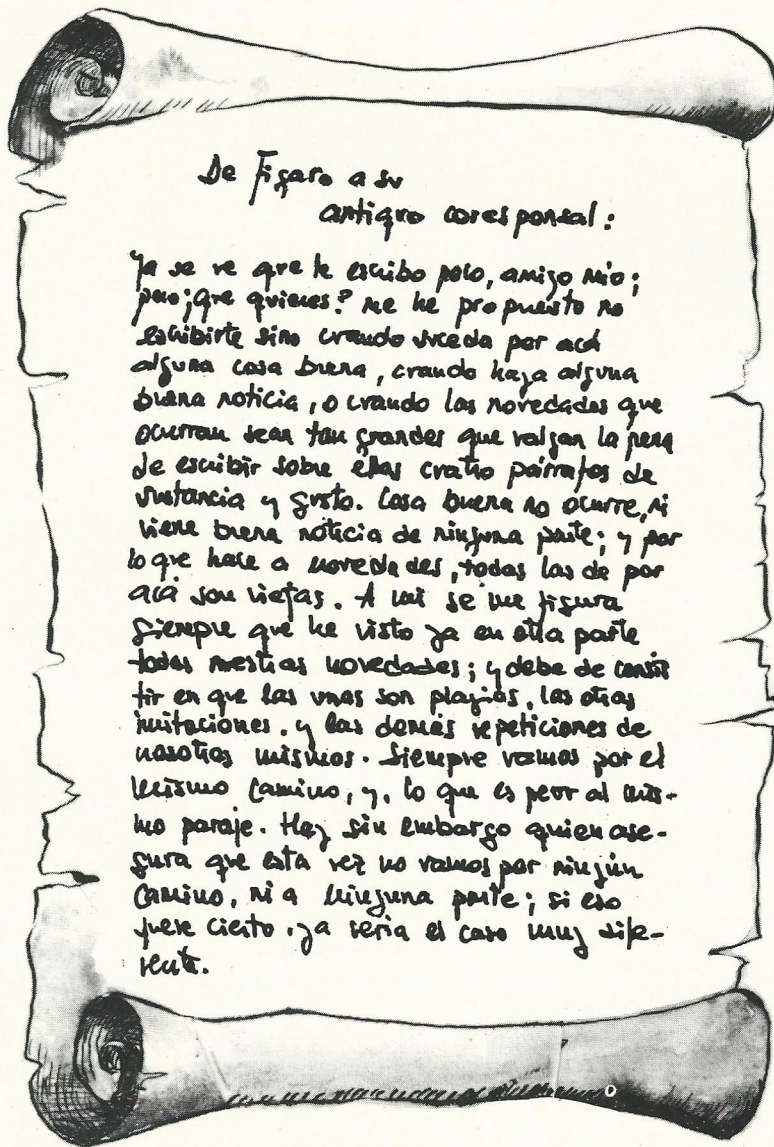 De Figaro a su
antiguo coresponsal:
Ya se ve que te escibo poco, amigo mio;
pero ¡que quieres? me he propuesto no
escibirte sino cuando suceda por acá
alguna cosa buena, cuando haya alguna
buena noticia, o cuando las novedades que
ocurran sean tan grandes que valgan la pena
de escribir sobre ellas cuatro párrafos de
sustancia y gusto. Cosa buena no ocurre, ni
viene buena noticia de ninguna parte; y por
lo que hace a novedades, todas las de por
acá son viejas. A mi se me figura
siempre que he visto ya en otra parte
todas nuestras novedades; y debe de consis
tir en que las unas son plagios, las otras
imitaciones, y las demás repeticiones de
nosotros mismos. Siempre vamos por el
mismo camino, y, lo que es peor al mis-
mo paraje. Hay sin embargo quien ase-
gura que esta vez no vamos por ningún
camino, ni a ninguna parte; si eso
fuese cierto, ya seria el caso muy dife-
rente.